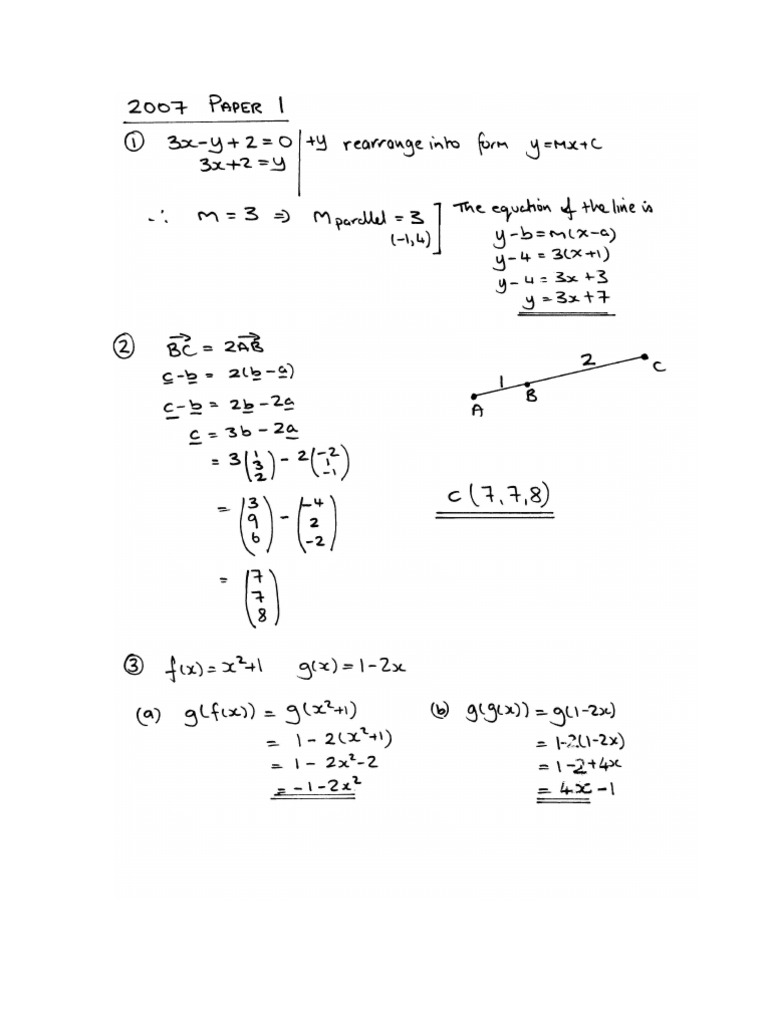 2007 PAPER 1
① 3x-y+2=0 | +y rearrange into form y=mx+c
3x+2=y
∴ m=3 ⇒ m parallel = 3
(-1,4)
The equation of the line is
y-b=m(x-a)
y-4=3(x+1)
y-4=3x+3
y=3x+7
② BC→ = 2AB→
c-b = 2(b-a)
c-b = 2b-2a
c = 3b-2a
= 3(1 3 2) - 2(-2 1 -1)
= (3 9 6) - (-4 2 -2)
= (7 7 8)
1 2
A B C
C(7,7,8)
③ f(x)=x²+1 g(x)=1-2x
(a) g(f(x)) = g(x²+1)
= 1-2(x²+1)
= 1-2x²-2
= -1-2x²
(b) g(g(x)) = g(1-2x)
= 1-2(1-2x)
= 1-2+4x
= 4x-1